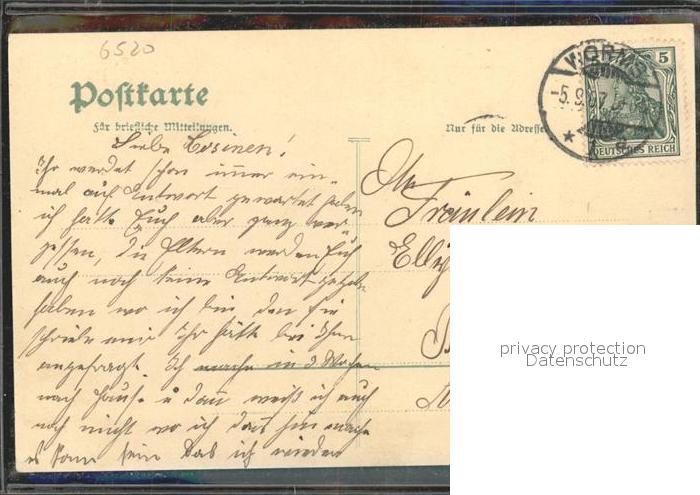 6520
Postkarte
Für briefliche Mitteilungen.
Nur für die Adresse
WORMS
-5.9.07
5
DEUTSCHES REICH
Liebe Cosinen!
Ihr werdet schon immer ein-
mal auf Antwort gewartet haben
ich hätte Euch aber ganz ver-
gessen, die Eltern werden Euch
auch noch keine Antwort gegeben
haben wo ich bin den sie
schrieben mir Ihr hätte bei Ihnen
angefragt. Ich mache in 3 Wochen
nach Hause u dann weiß ich auch
noch nicht wo ich dann hin mache
es kann sein das ich wieder
An
Fräulein
Elly
privacy protection
Datenschutz